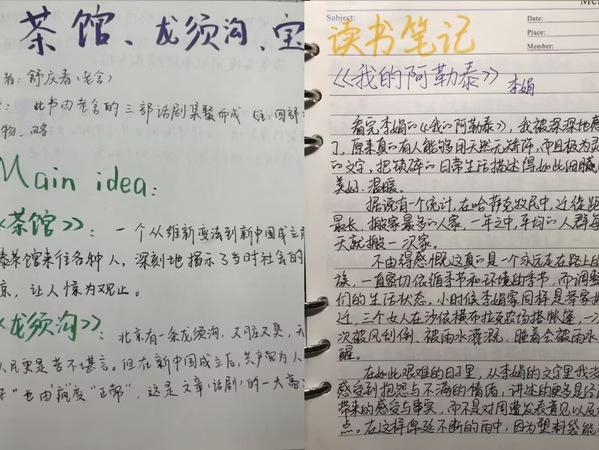 茶馆、龙须沟、宝
者：舒庆春（老舍）
：此书由老舍的三部话剧集聚而成
物.略
Main idea:
《茶馆》：一个从维新变法到新中国成立
泰茶馆来往各种人，深刻地揭示了当时社会的
京，让人惊为观止。
《龙须沟》：北京有一条龙须沟，又脏又臭，天
人民更是苦不堪言。但在新中国成立后，共产党为人
"也由"病"变"正常"，这是文章（话剧）的一大亮
Subject:
Date:
Place:
Member:
读书笔记
《我的阿勒泰》 李娟
看完李娟的《我的阿勒泰》，我被深深地
了，原来真的有人能够用天然无雕饰，而且极为
的文字，把破碎的日常生活描述得如此细腻
美好、温暖。
据说有个统计，在哈萨克牧民中，迁徙距
最长，搬家最多的人家，一年之中，平均的人群每
天就搬一次家。
不由得感慨，这真的是一个永远走在路上的
族，一直密切依循季节和环境的季节，而调整
们的生活状态。小时候李娟家同样是举家搬
迁，三个女人在沙依横布拉克农场搭帐篷，一
次被风刮倒、被雨水灌溉，睡着会被雨水
醒。
在如此艰难的日子里，从李娟的文字里我没
感受到抱怨与不满的情绪，讲述的更多是经历
带来的感受与事实，而不是对周遭发表意见以及
点。在这样绵延不断的雨中，因为塑料袋能